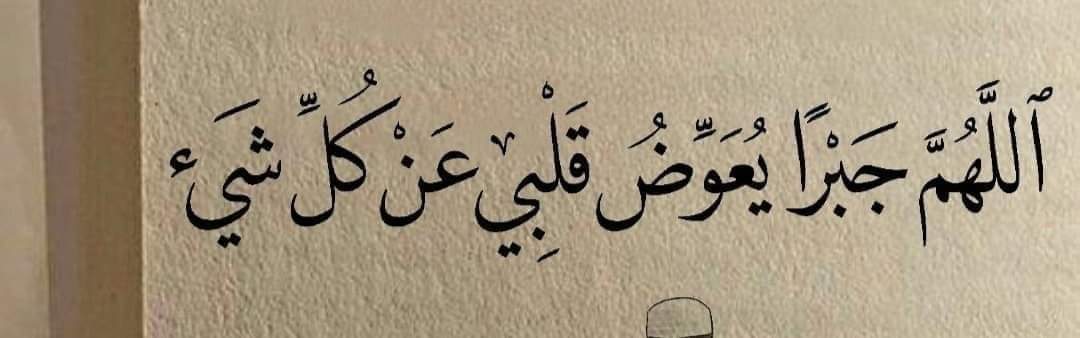 ٱللَّهُمَّ جَبْرًا يُعَوِّضُ قَلْبِيْ عَنْ كُلِّ شَيَء